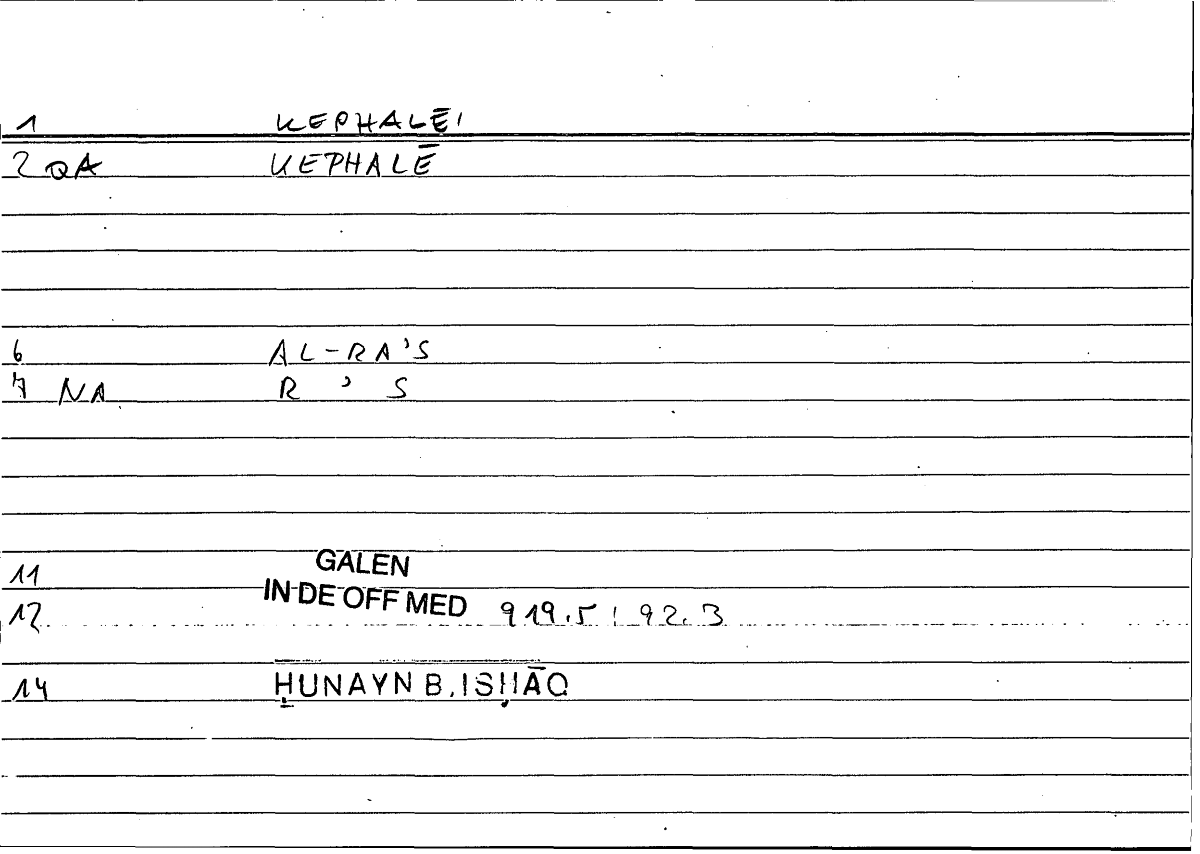 1 KEPHALĒI
2 QA KEPHALĒ
6 AL-RA'S
7 NA R ' S
11 GALEN
12 IN DE OFF MED 919.5 / 92.3
14 ḤUNAYN B. ISḤĀQ